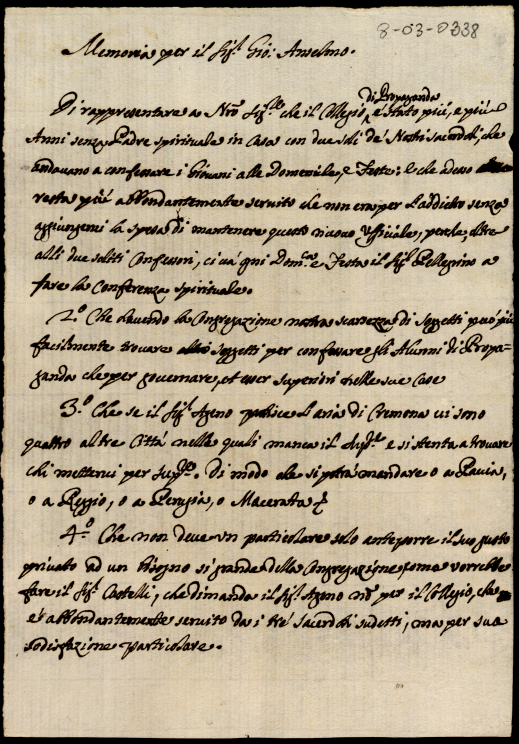 8-03-0338
Memoria per il Sigr. Gio: Anselmo.
di Propaganda
Di rappresentare a Nro Sigre che il Collegio è stato più, e più
Anni senza Padre spirituale in Casa con due soli de' Nostri sacerdoti, che
andavano a confessare i Giovani alle Domeniche, e Feste: e che adesso
resta più abbondantemente servito che non era per l'addietro senza
aggiungervi la spesa di mantenere questo nuovo Ufficiale, perche, oltre
alli due soliti Confessori, ci và ogni Domca e Festa il Sigr Pellegrino a
fare la Conferenza spirituale.
2.o Che havendo la Congregazione nostra scarsezza di Soggetti può più
facilmente trovare Soggetti per confessare gli Alunni di Propa-
ganda che per governare, et esser superiori nelle sue Case
3.o Che se il Sigr Ageno patisce l'aria di Cremona vi sono
quattro altre Città nelle quali manca il Supre e si stenta a trovare
chi mettervi per Supre. Di modo che si potrà mandare o a Pavia,
o a Reggio, o a Perugia, o Macerata
4.o Che non deve un particolare solo anteporre il suo gusto
privato ad un bisogno sì grande della Congregazione, come vorrebbe
fare il Sigr Bottelli, che dimanda il Sigr Ageno no per il Collegio, che
è abbondantemente servito da i trè sacerdoti sudetti, ma per sua
sodisfazione particolare.